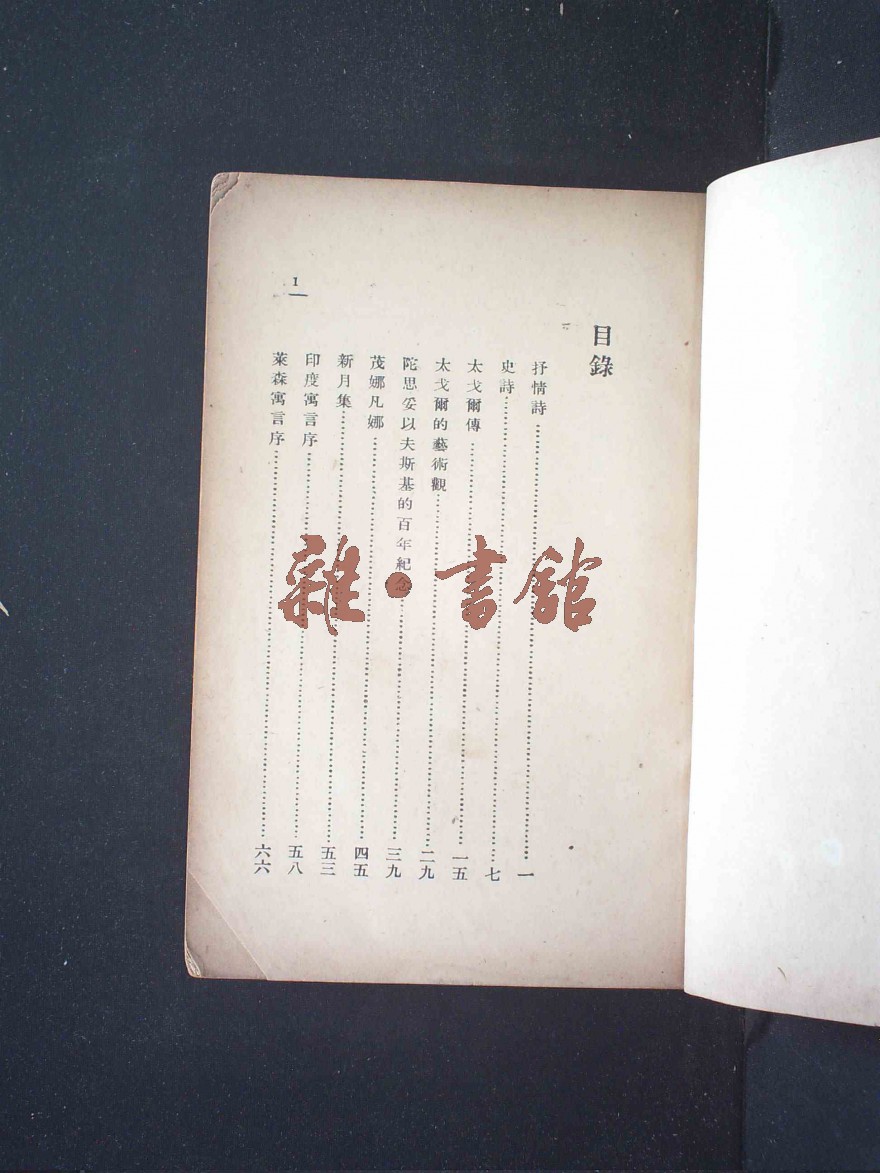 目錄
抒情詩……一
史詩……七
太戈爾傳……一五
太戈爾的藝術觀……二九
陀思妥以夫斯基的百年紀念……三九
茂娜凡娜……四五
新月集……五三
印度寓言序……五八
萊森寓言序……六六
1
雜·書館